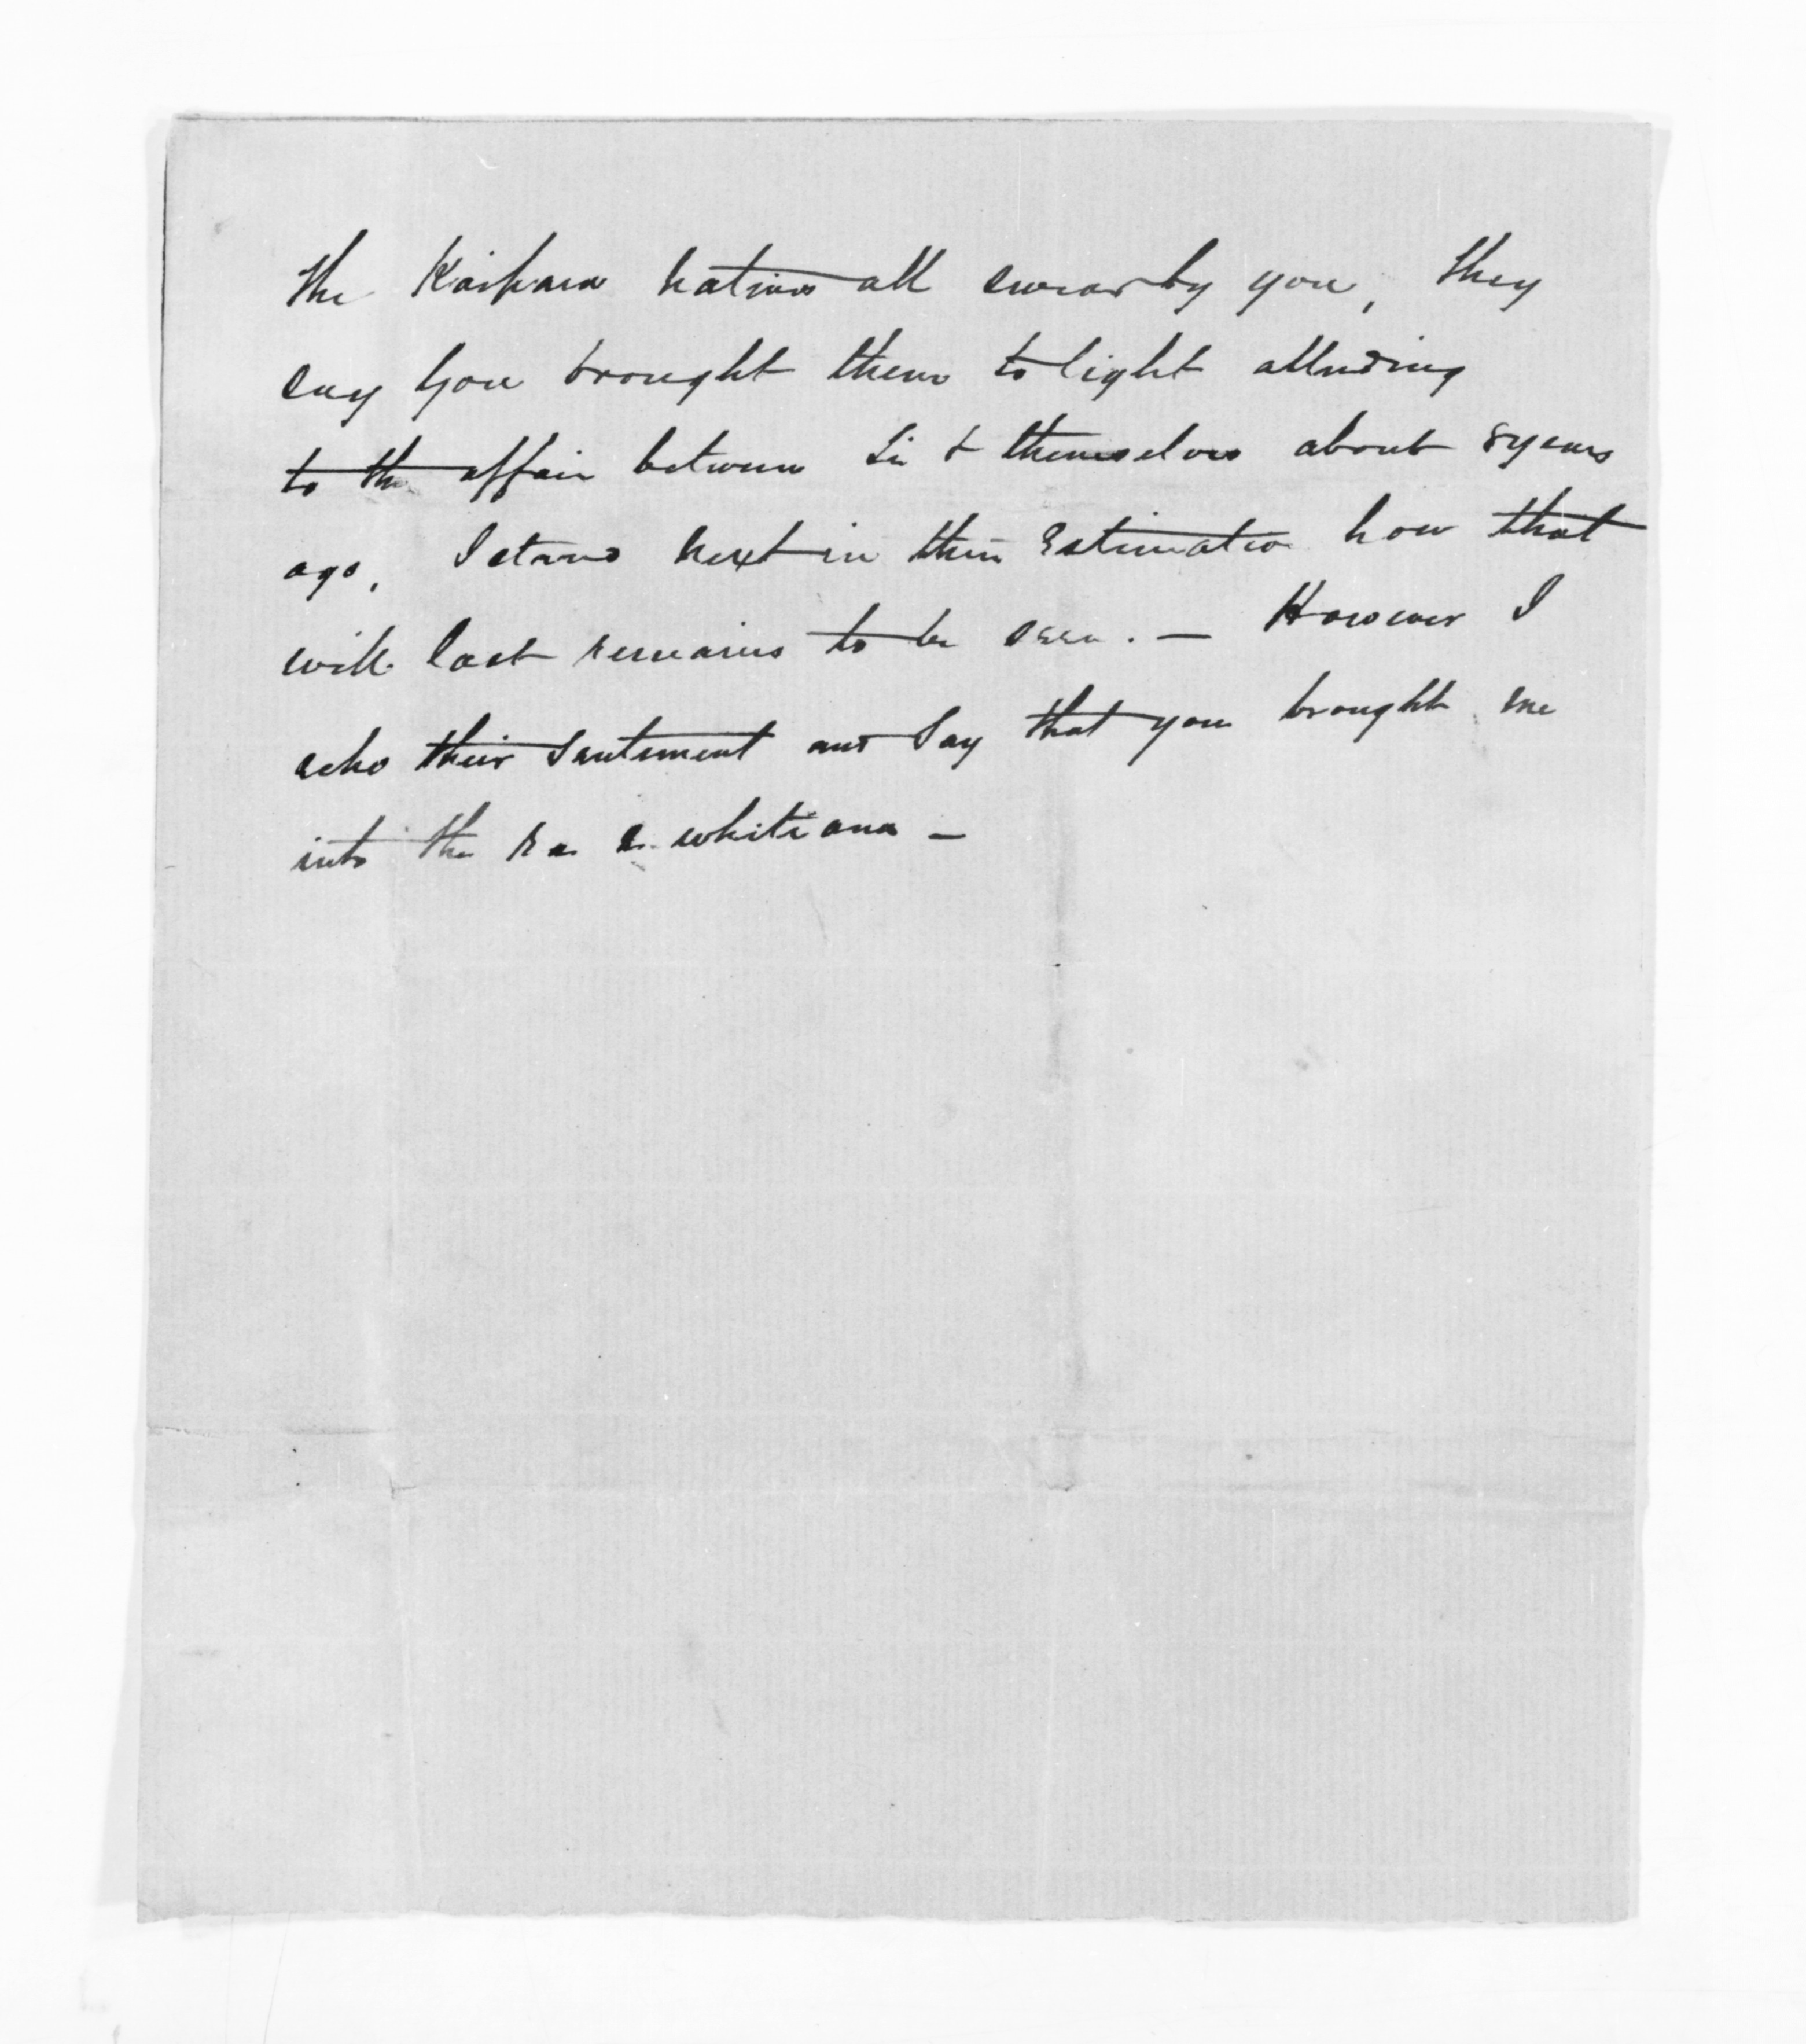 The Kaipara natives all swear by you, they
say you brought them to light alluding
to the affair between & themselves about 8 years
ago, I stand next in their estimation how that
will last remains to be seen. — However I
echo their sentiment and say that you brought me
into the ra e whitiana —